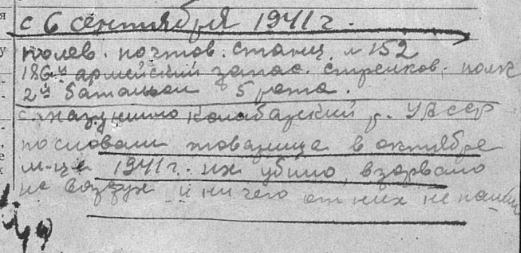 с 6 сентября 1941 г.
полев. почтов. станц. № 152
186й армейский запас. стрелков. полк
2й батальон 5 рота.
р. УАССР
по словам товарища в октябре
м-це 1941 г. их убило, взорвало
на воздух и ни чего от них не нашли